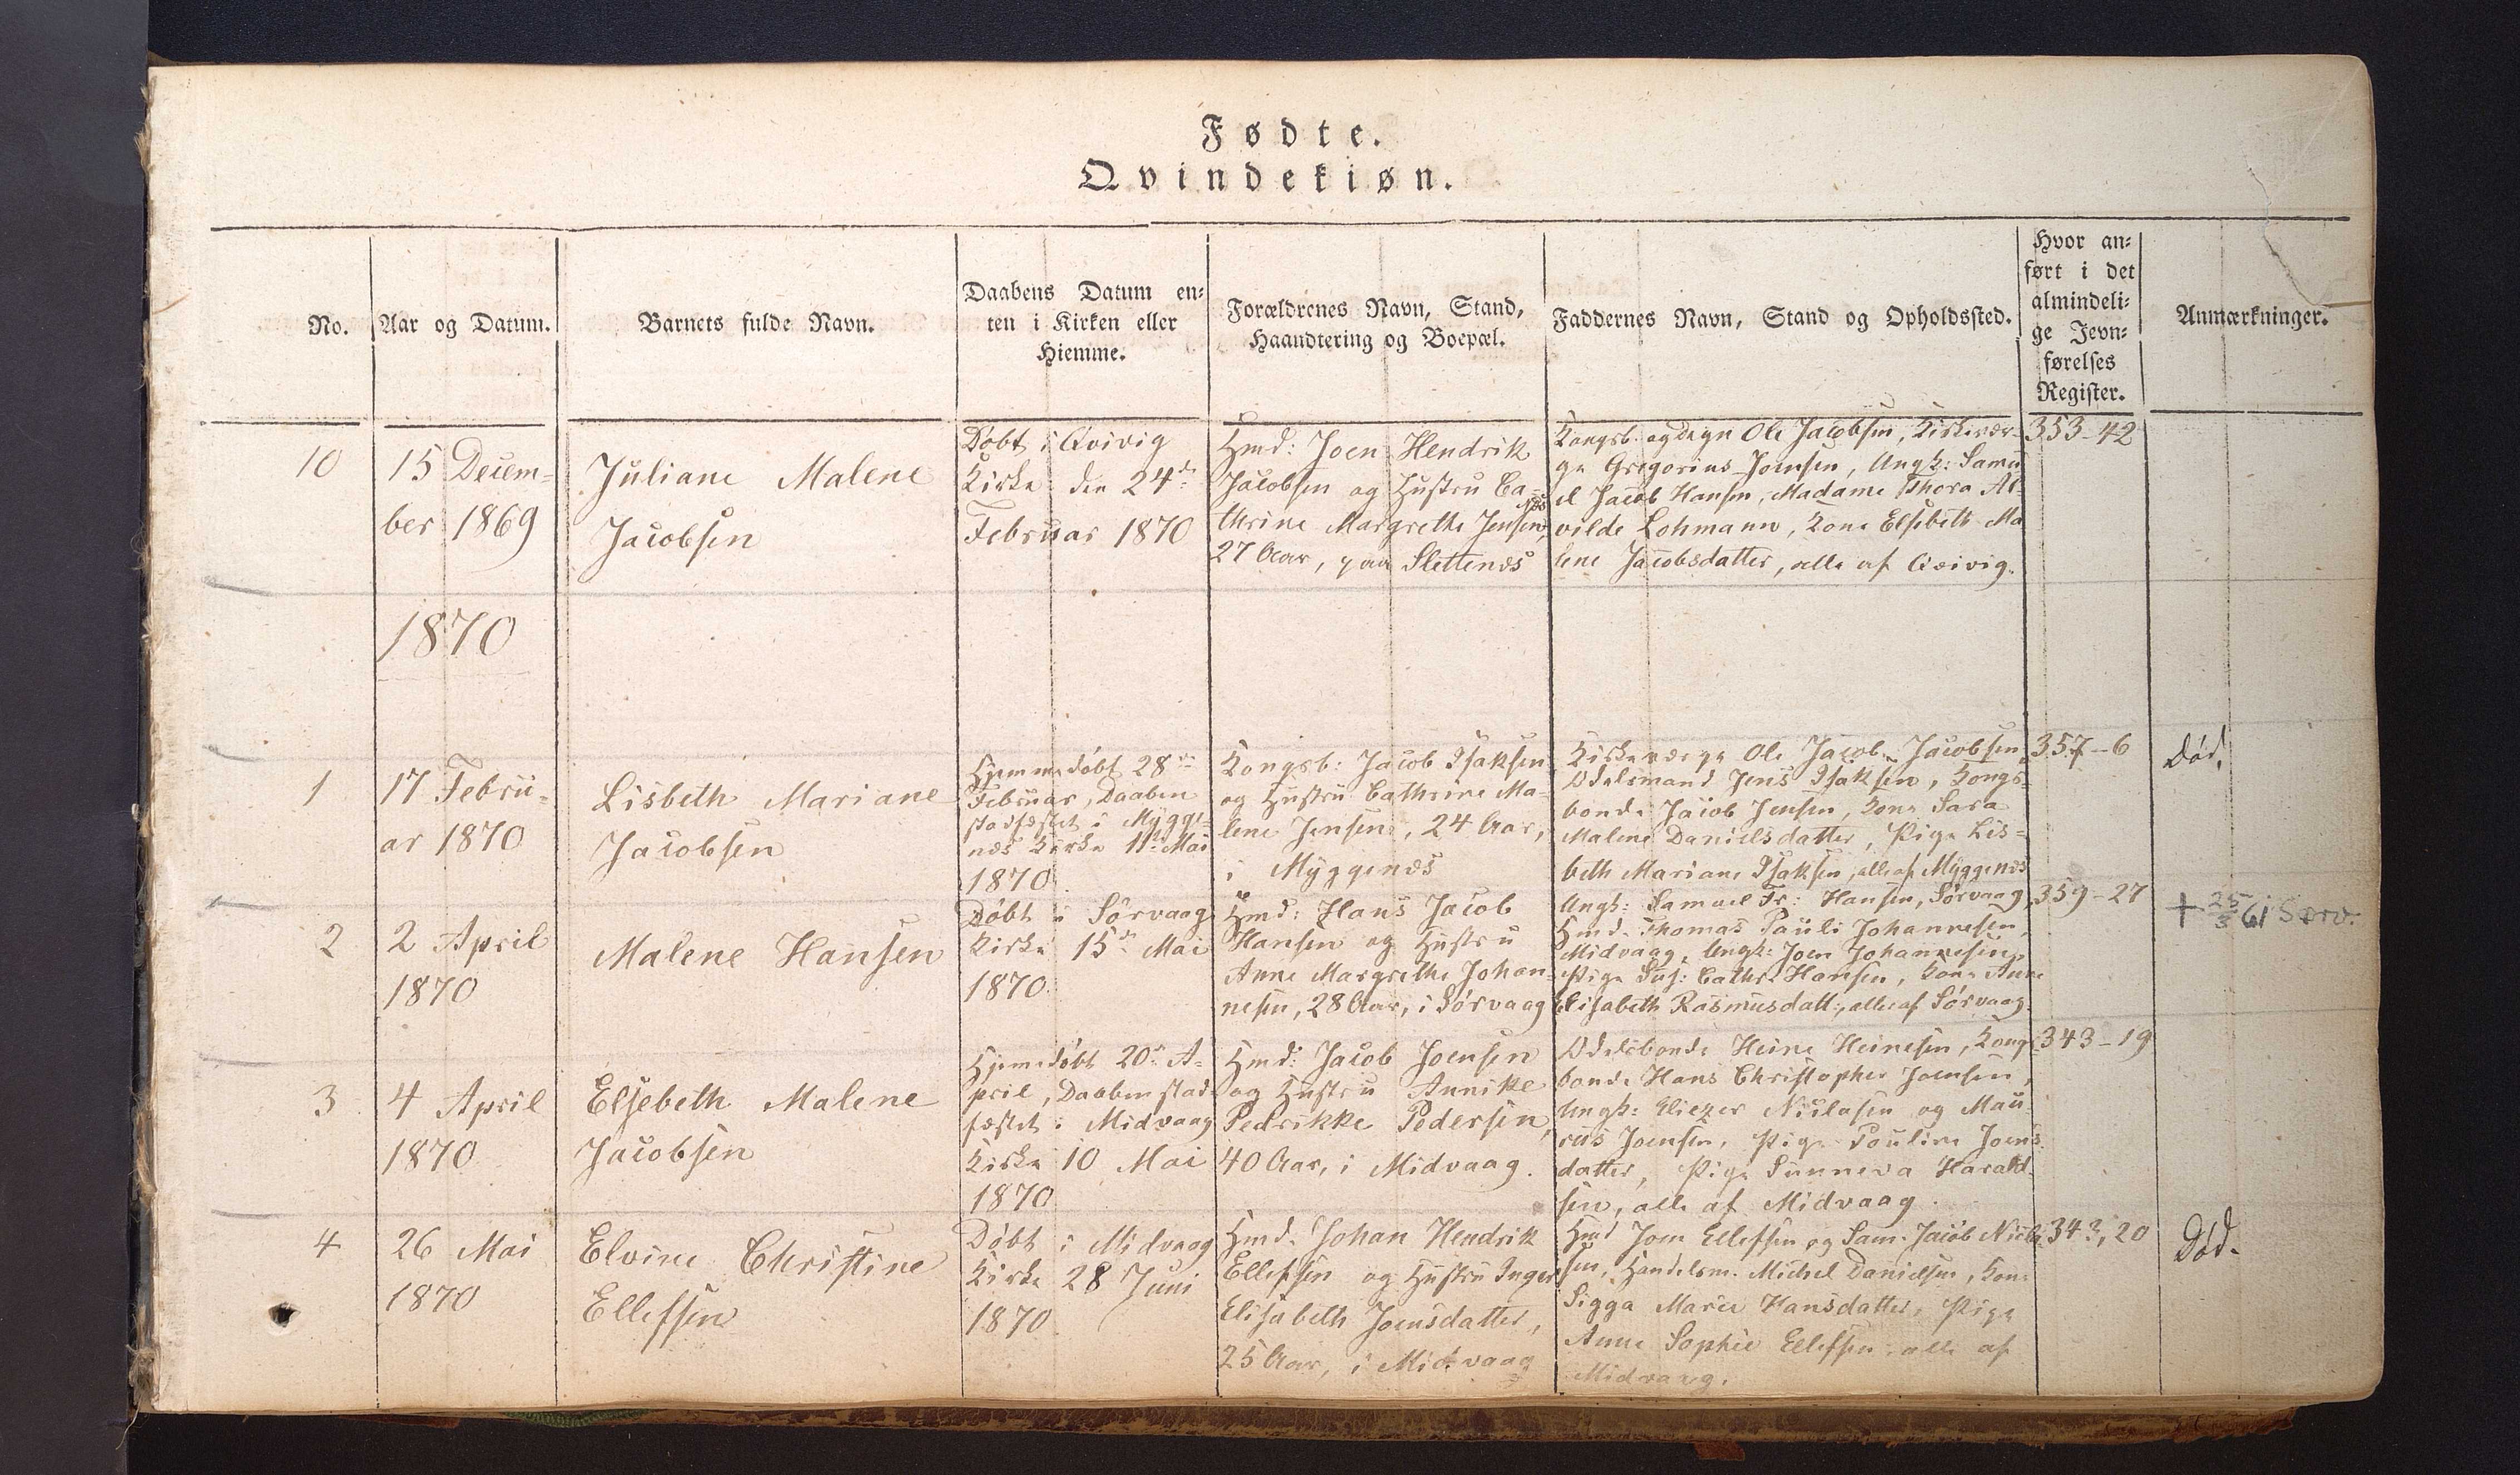 Fødte.
Qvindekiøn.
No.
Aar og Datum.
Barnets fulde Navn.
Daabens Datum en-
ten i Kirken eller
Hiemme.
Forældrenes Navn, Stand,
Haandtering og Boepæl.
Faddernes Navn, Stand og Opholdssted.
Hvor an-
ført i det
almindeli-
ge Jevn-
førelses
Register.
Anmærkninger.
10
15 Decem-
ber 1869
Juliane Malene
Jacobsen
Døbt i Qvivig
Kirke den 24de
Februar 1870
Hmd: Joen Hendrik
Jacobsen og Hustru Ca-
thrine Margrethe Jensen,
27 Aar, paa Slettenæs
Kongsb. og Degn Ole Jacobsen, Kirkevær-
ge Gregorius Joensen, Ungk: Samu
el Jacob Hansen, Madame Thora Al-
vilde Lohmann, Kone Elsebeth Ma
lene Jacobsdatter, alle af Qvivig.
353-42
1870
1
17 Febru-
ar 1870
Lisbeth Mariane
Jacobsen
Hjemmedøbt 28de
Februar, Daaben
stadfæstet i Mygge-
næs Kirke 11te Mai
1870
Kongsb: Jacob Isaksen
og Hustru Cathrine Ma-
lene Jensen, 24 Aar,
i Myggenæs
Kirkeværge Ole Jacob Jacobsen,
Odelsmand Jens Isaksen, Kongs-
bonde Jacob Jensen, Kone Sara
Malene Danielsdatter, Pige Lis-
beth Mariane Isaksen, alle af Myggenæs
357-6
Død.
2
2 April
1870
Malene Hansen
Døbt i Sørvaag
Kirke 15de Mai
1870
Hmd: Hans Jacob
Hansen og Hustru
Anne Margrethe Johan
nesen, 28 Aar, i Sørvaag
Ungk: Samuel Fr: Hansen, Sørvaag,
Hmd. Thomas Pauli Johannesen,
Midvaag, Ungk: Joen Johannesen,
Pige Sus: Cathr. Hansen, Kone Anne
Elisabeth Rasmusdatt:, alle af Sørvaag.
359-27
+ 25/3 61 i Sørv.
3
4 April
1870
Elsebeth Malene
Jacobsen
Hjemdøbt 20de A-
pril, Daaben stad
fæstet i Midvaag
Kirke 10 Mai
1870
Hmd: Jacob Joensen
og Hustru Annike
Pedrikke Pedersen,
40 Aar, i Midvaag.
Odelsbonde Heine Heinesen, Kongs-
bonde Hans Christopher Joensen,
Ungk: Eliezer Niclasen og Mau
rus Joensen, Pige Pouline Joens
datter, Pige Sunneva Harald-
sen, alle af Midvaag.
343-19
4
26 Mai
1870
Elvine Christine
Ellefsen
Døbt i Midvaag
Kirke 28 Juni
1870
Hmd. Johan Hendrik
Ellefsen og Hustru Inger
Elisabeth Joensdatter,
25 Aar, i Midvaag
Hmd Joen Ellefsen og Sam: Jacob Nicla
sen, Handelsm. Michel Danielsen, Kone
Sigga Marie Hansdatter, Pige
Anne Sophie Ellefsen, alle af
Midvaag.
343,20
Død.